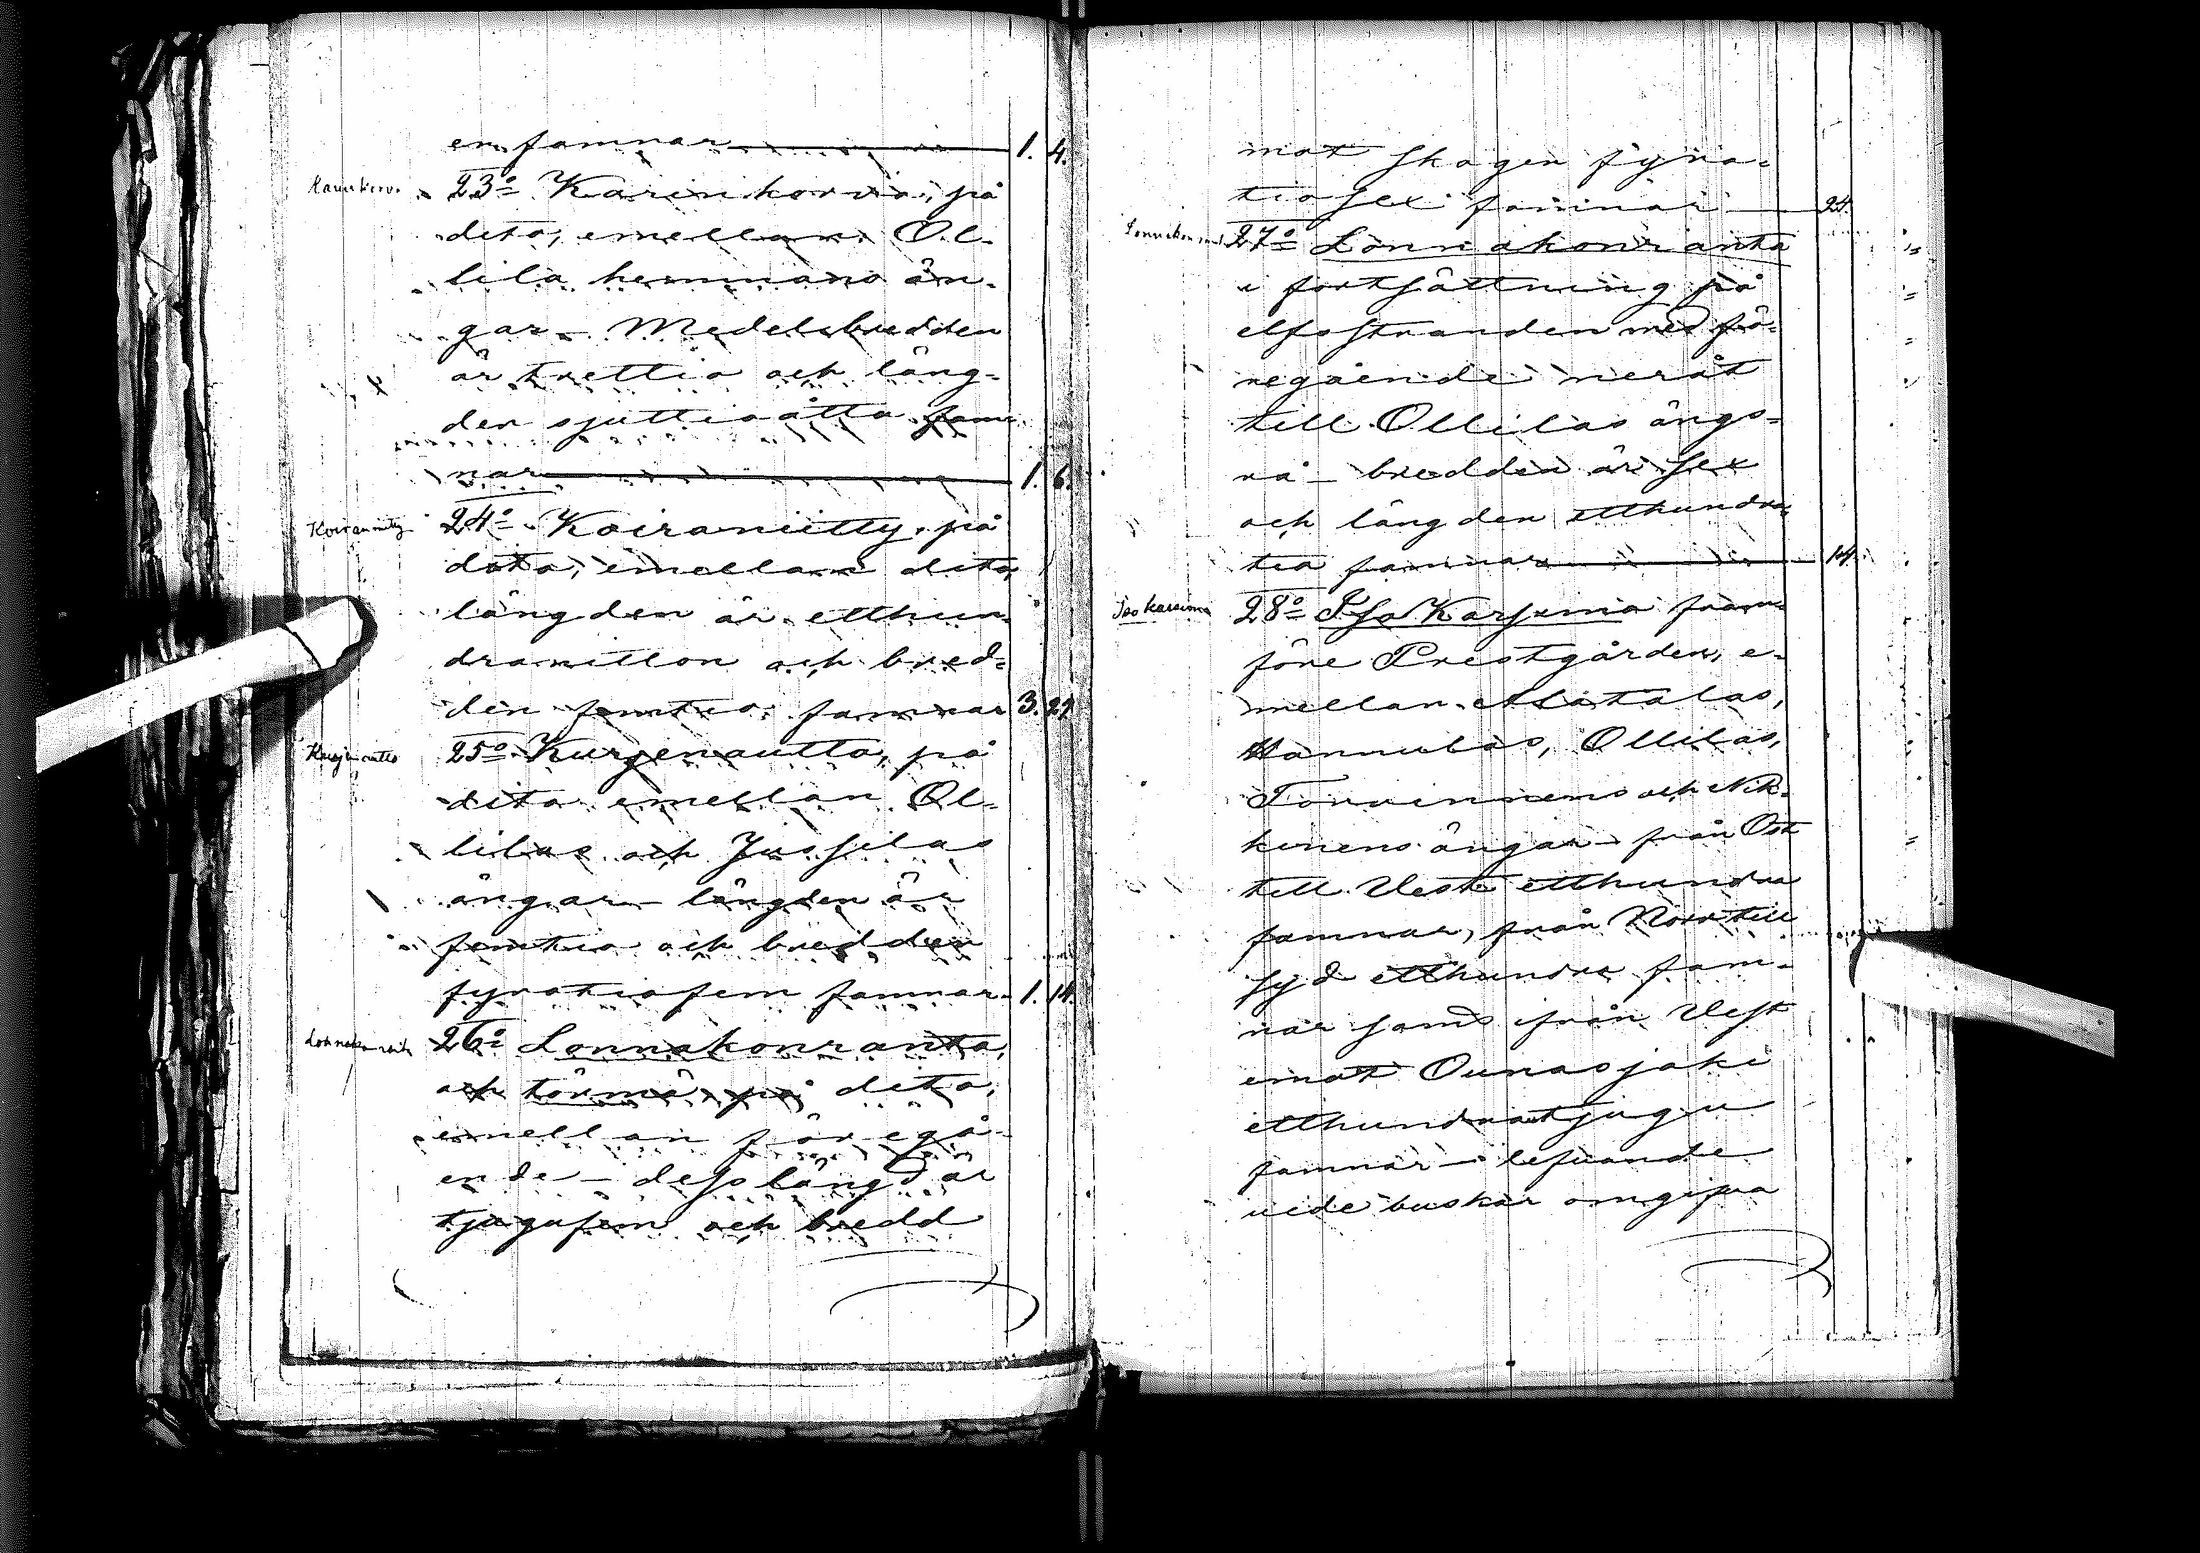 en famnar — 1. 4.
Karinkorv. 23o Karinkorva, på
dito, emellan Ol-
lila hemmans än-
gar – Medelbredden
är trettio och läng-
den sjuttioåtta fam-
nar — 1. 6.
Koiraniitty 24o Koiraniitty, på
dito, emellan dito,
längden är etthun-
dranitton och bred-
den femtio famnar 3. 29
Kurjenautto 25o Kurjenautto, på
dito emellan Ol-
lilas och Jussilas
ängar – längden är
femtio och bredden
fyratiofem famnar. 1. 14.
26o Lonnakonranta,
och törmä på dito,
emellan föregå-
ende – dess längd är
tjugufem och bredd
mot skogen fyra-
tiosex famnar — 24.
27o Lonnakonranta
i fortsättning på
elfsstranden med fö-
regående neråt
till Ollilas ängs-
rå – bredden är sex
och längden etthundra
tio famnar — 14.
Iso karsima 28o Iso Karsima fram-
före Prestgården, e-
mellan Alatalas,
Hannulas, Ollilas,
Torvinnens och Nik-
kinens ängar – från Ost
till Vest etthundra
famnar, från Norr till
syd etthundra fam-
nar samt ifrån Vest
emot Ounasjoki
etthundratjugu
famnar – lefvande
vide buskar omgifva